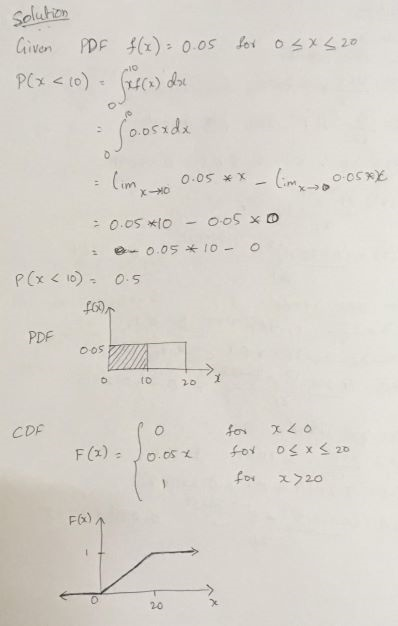 Solution
Given PDF f(x) = 0.05 for 0 ≤ x ≤ 20
P(x < 10) = ∫₀¹⁰ xf(x) dx
= ∫₀¹⁰ 0.05 x dx
= lim x→10 0.05 * x - lim x→0 0.05 * x
= 0.05 * 10 - 0.05 × 0
= 0.05 * 10 - 0
P(x < 10) = 0.5
f(x)
PDF
0.05
0 10 20 x
CDF
F(x) = { 0 for x < 0
0.05 x for 0 ≤ x ≤ 20
1 for x > 20
F(x)
1
0 20 x